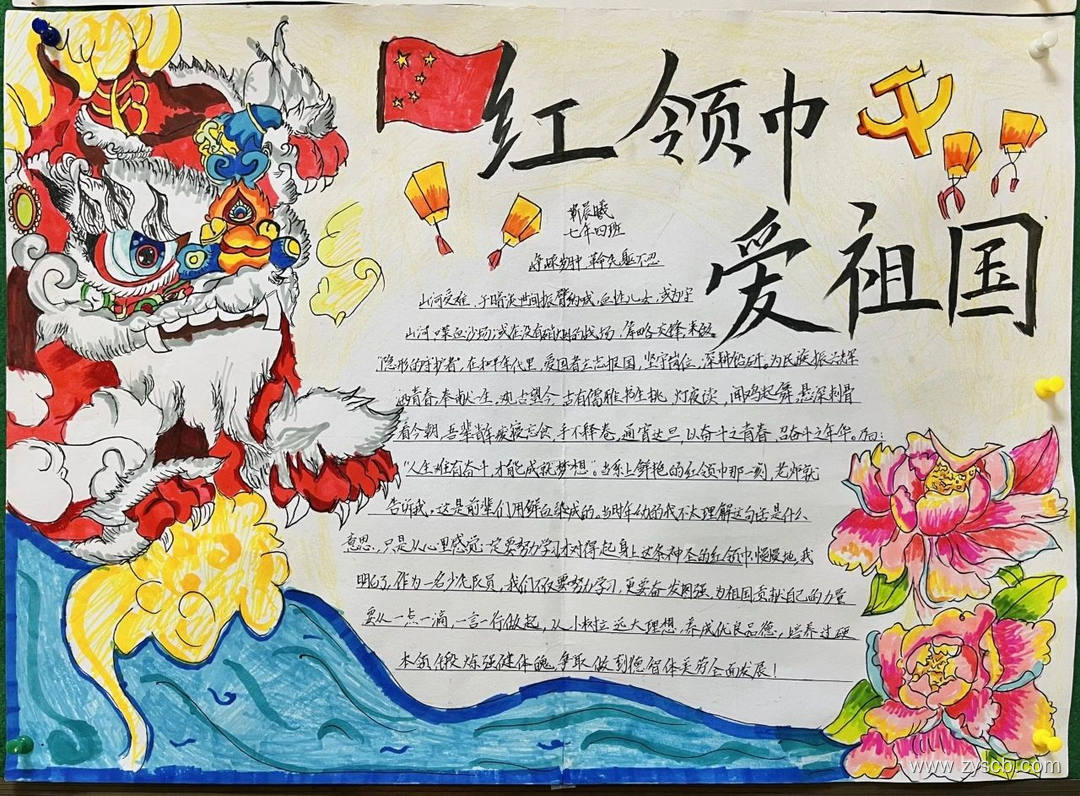 红领巾
爱祖国
靳晨曦
七年四班
峥嵘岁月中 革命先驱不忘
山河受难，于暗淡世间振臂呐喊，血性儿女，或为守
山河 喋血沙场；或在没有硝烟的战场，智略交锋
隐形的守护者，在和平年代里，爱国者立志报国，坚守岗位，深耕钻研，为民族振兴
青春，奉献一生，观古望今 古有儒雅书生挑 灯夜读，闻鸡起舞 悬深刺骨
看今朝，吾辈青年废寝忘食，手不释卷，通宵达旦，以奋斗之青春，召奋斗之年华。
“人生唯有奋斗才能成就梦想”。当系上鲜艳的红领巾那一刻，老师就
告诉我，这是前辈们用鲜血染成的。当时年幼的我不大理解这句话是什么
意思，只是从心里感觉一定要努力学习才对得起身上这条神圣的红领巾 慢慢地，我
明白了，作为一名少先队员，我们不仅要努力学习，更要奋发图强，为祖国贡献自己的力量
要从一点一滴，一言一行做起，从小树立远大理想，养成优良品德，培养过硬
本领，锻炼强健体魄，争取做到德智体美劳全面发展！
www.zyscb.com